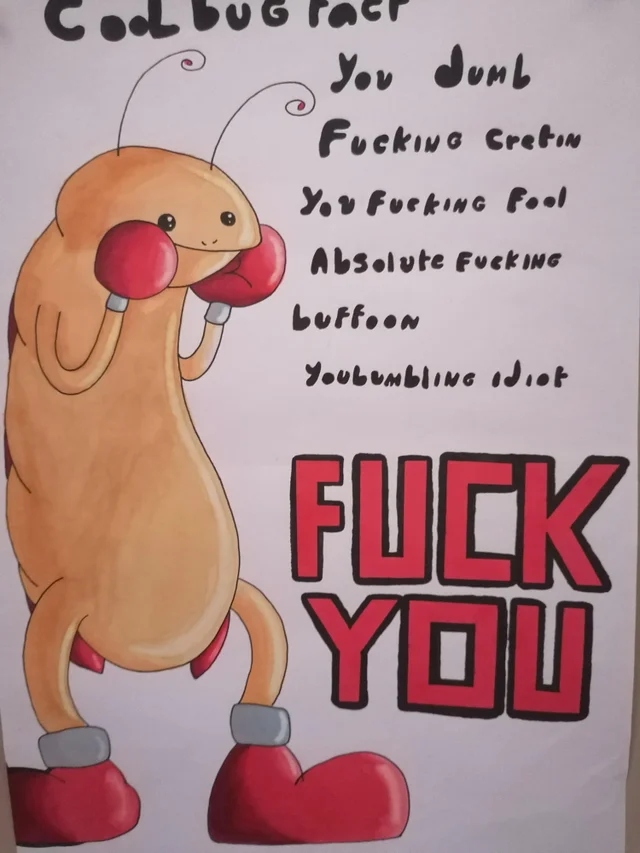 Cool bug fact
You dumb
Fucking cretin
You fucking fool
Absolute fucking
buffoon
You bumbling idiot
FUCK
YOU